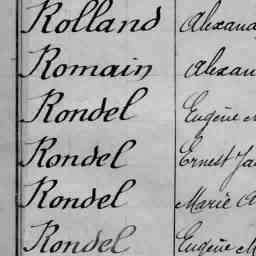 Rolland Alexand
Romain Alexan
Rondel Eugène M
Rondel Ernest Ja
Rondel Marie A
Rondel Eugène M